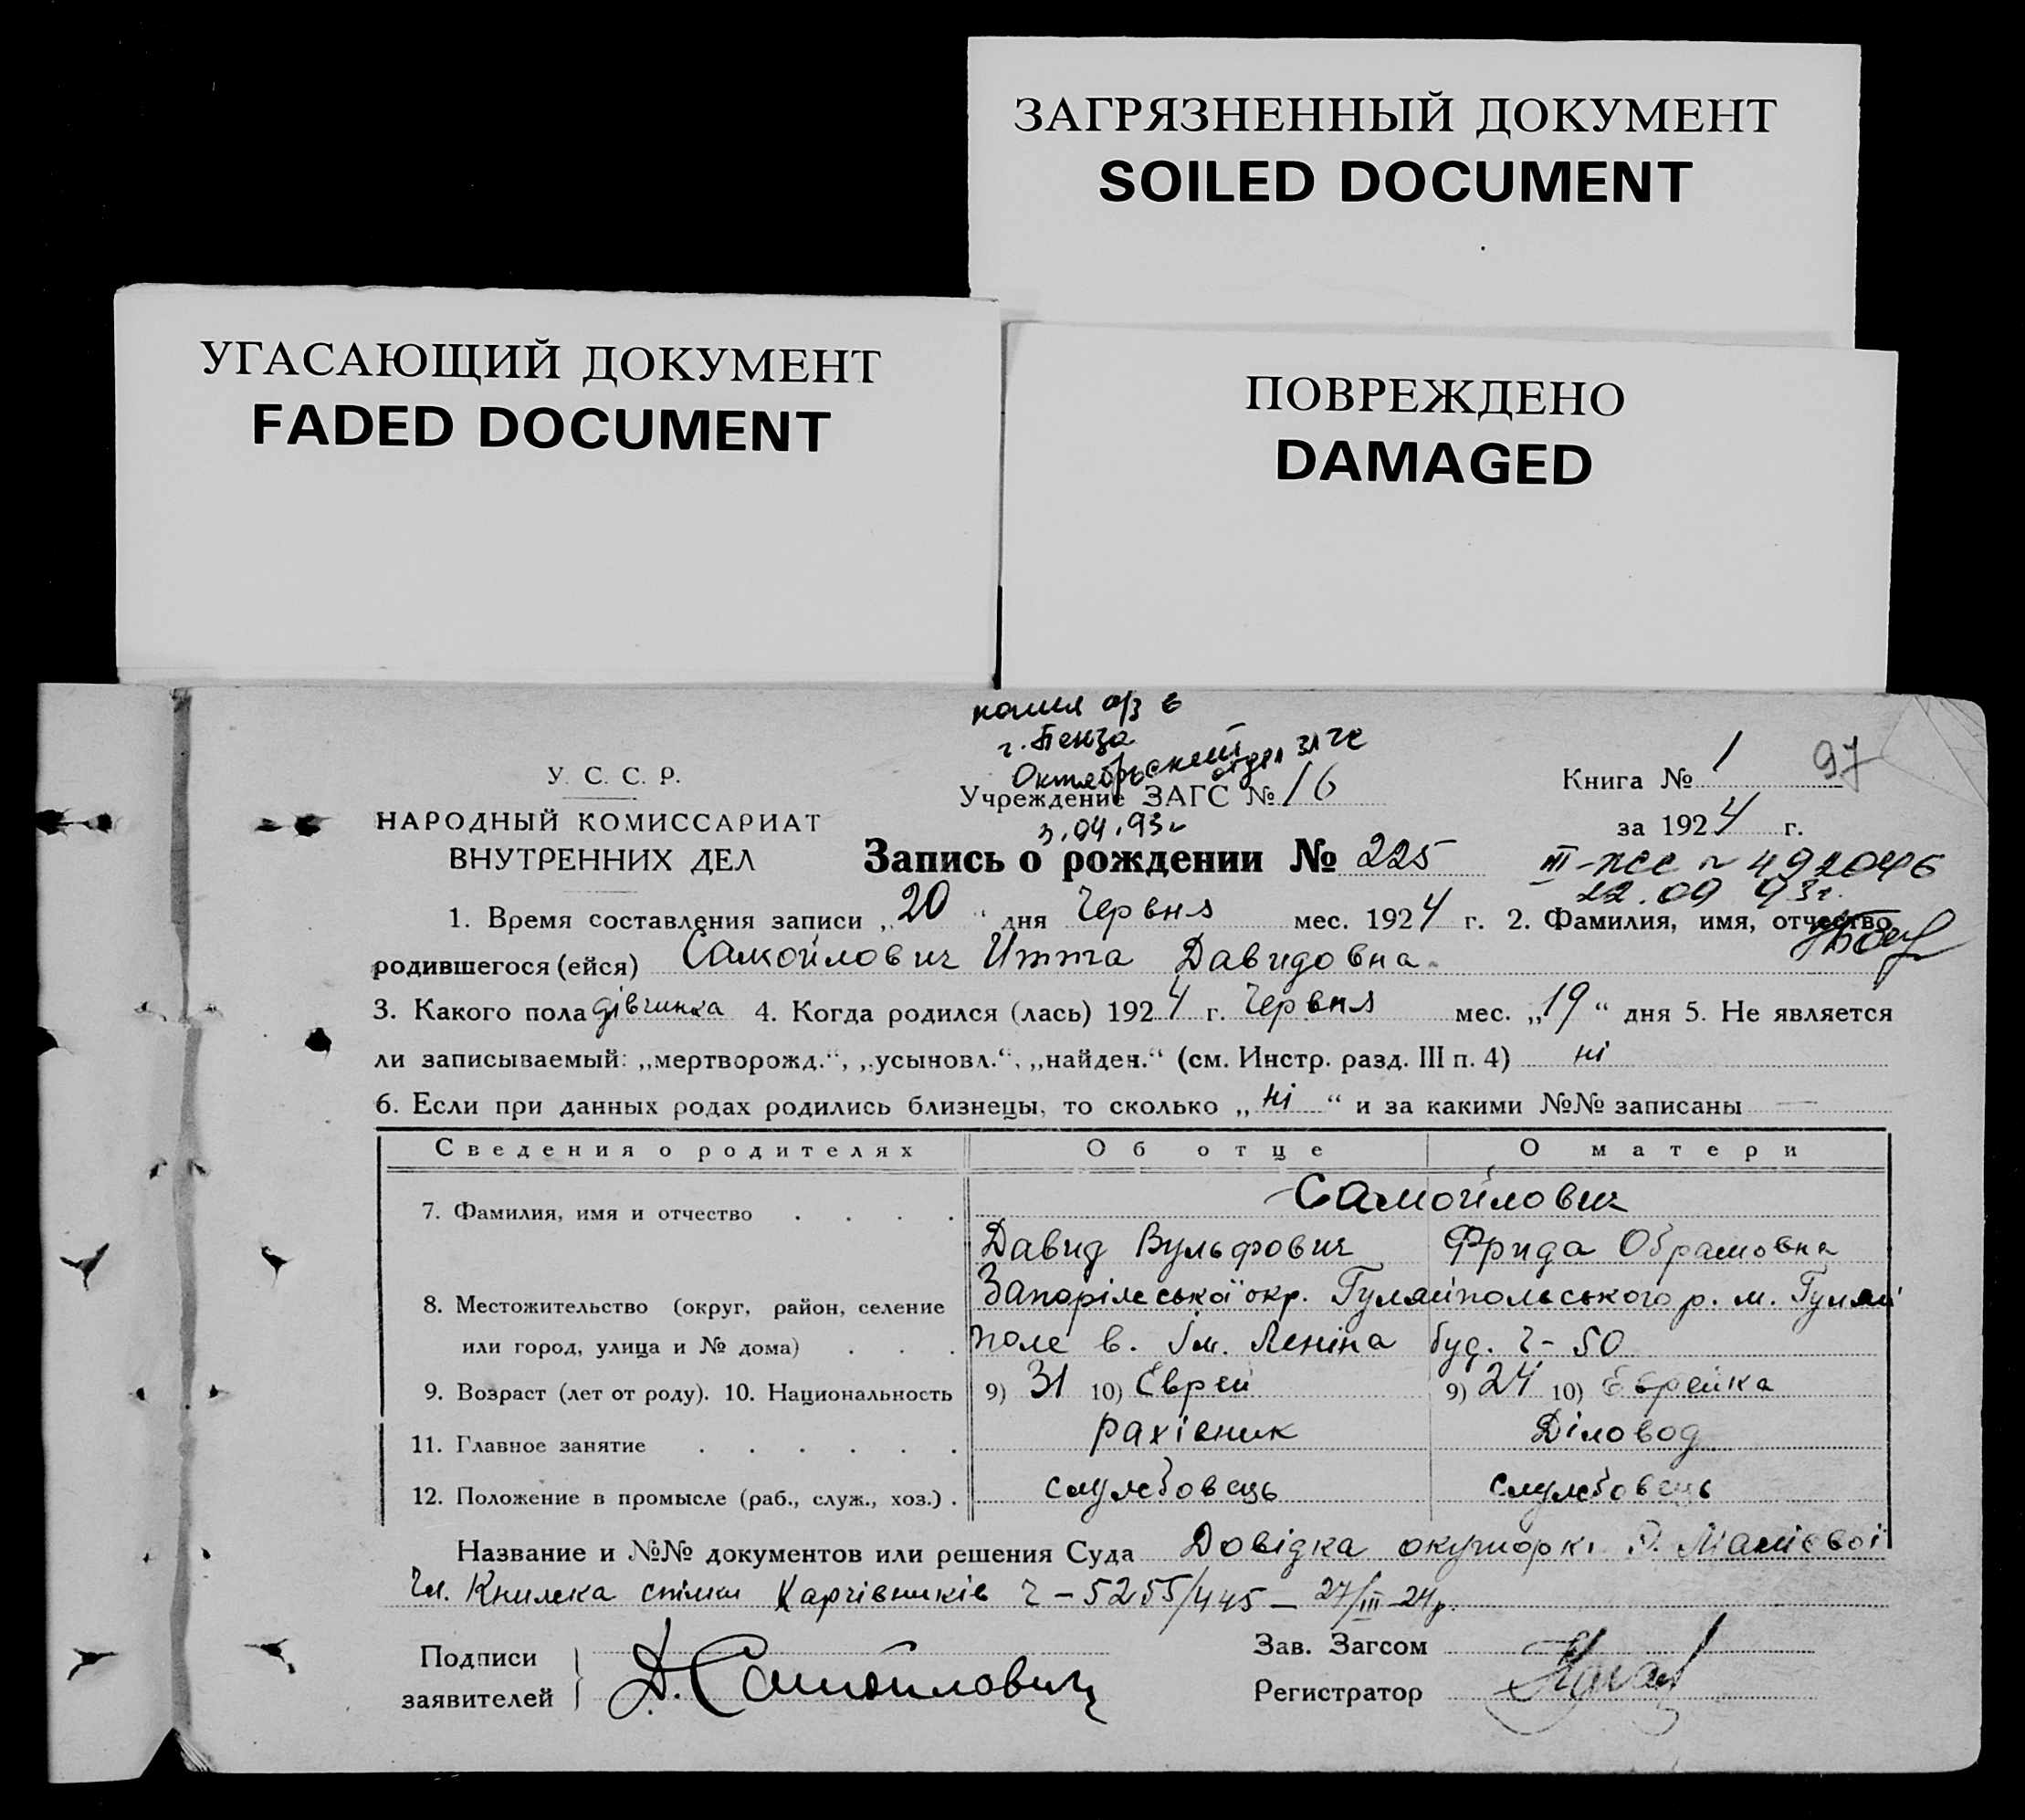 ЗАГРЯЗНЕННЫЙ ДОКУМЕНТ
SOILED DOCUMENT
УГАСАЮЩИЙ ДОКУМЕНТ
FADED DOCUMENT
ПОВРЕЖДЕНО
DAMAGED
копия а/з в
г. Пенза
Октябрьский отдел ЗАГС
У. С. С. Р.
НАРОДНЫЙ КОМИССАРИАТ
ВНУТРЕННИХ ДЕЛ
Учреждение ЗАГС № 16
.04.93г
Книга № 1 97
за 1924 г.
Запись о рождении № 225
III-ЖС № 492046
22.09 93г.
1. Время составления записи „20“ дня Червня мес. 1924 г. 2. Фамилия, имя, отчество
родившегося (ейся) Самойлович Итта Давидовна
3. Какого пола дівчинка 4. Когда родился (лась) 1924 г. Червня мес. „19“ дня 5. Не является
ли записываемый: „мертворожд.“, „усыновл.“, „найден.“ (см. Инстр. разд. III п. 4) ні
6. Если при данных родах родились близнецы, то сколько „ні“ и за какими №№ записаны —
Сведения о родителях Об отце О матери
7. Фамилия, имя и отчество . . . . Самойлович
Давид Вульфович Фрида Обрамовна
8. Местожительство (округ, район, селение Запоріжської окр. Гуляйпольського р. м. Гуляй
или город, улица и № дома) . . . поле в. Ім. Леніна буд. ч-50
9. Возраст (лет от роду). 10. Национальность 9) 31 10) Єврей 9) 24 10) Єврейка
11. Главное занятие . . . . . . рахівник Діловод
12. Положение в промысле (раб., служ., хоз.) . службовець службовець
Название и №№ документов или решения Суда Довідка окушорки
Чл. Книжка спілки Харчівників ч-5255/445 — 27/III-24р.
Подписи
заявителей
Д. Самойлович
Зав. Загсом
Регистратор